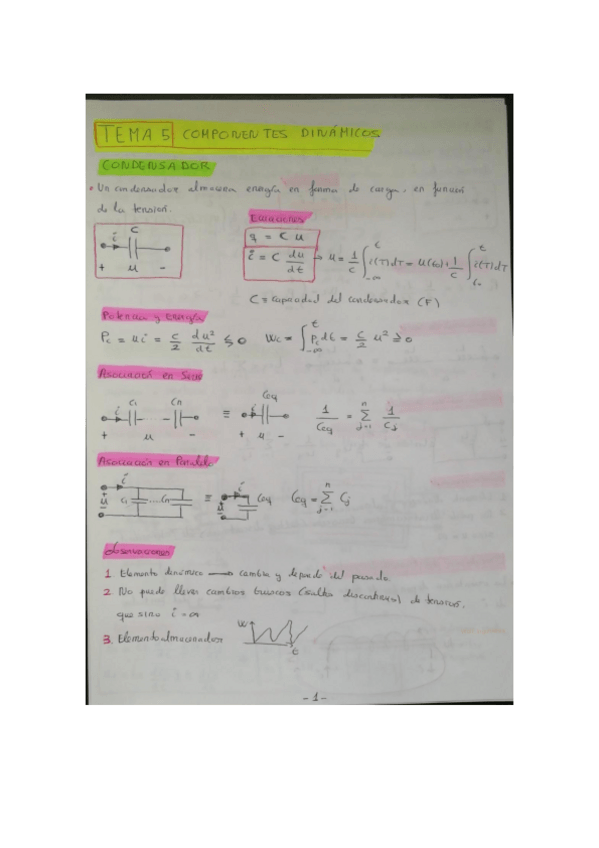 TEMA 5 COMPONENTES DINÁMICOS
CONDENSADOR
• Un condensador almacena energía en forma de carga, en función
de la tensión.
Ecuaciones
C
i
+ u -
q = C u
i = C du/dt → u = 1/C ∫_{-∞}^{t} i(T)dT = u(t₀)+1/C ∫_{t₀}^{t} i(T)dT
C ≡ capacidad del condensador (F)
Potencia y energía
Pc = u i = C/2 du²/dt ≶ 0 Wc = ∫_{-∞}^{t} Pc dt = C/2 u² ≥ 0
Asociación en Serie
i C₁ Cn ≡ i Ceq 1/Ceq = ∑_{j=1}^{n} 1/Cj
+ u - + u -
Asociación en Paralelo
i + u - C₁ ....Cn ≡ i u Ceq Ceq = ∑_{j=1}^{n} Cj
Observaciones
1. Elemento dinámico → cambia y depende del pasado
2. No puede llevar cambios bruscos (saltos discontinuos) de tensión,
que sino i = ∞
3. Elemento almacenador W t
- 1 -